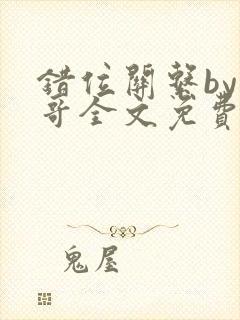 錯位關繫by
哥全文免費
鬼屋